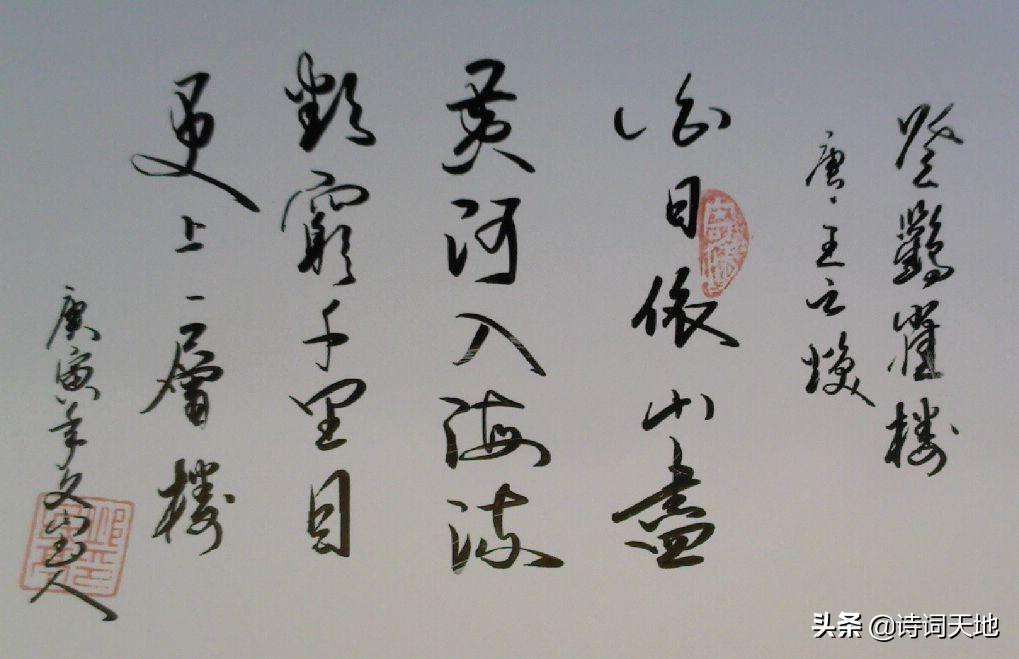 登鸛雀楼
唐·王之焕
白日依山盡
黄河入海流
欲窮千里目
更上一層楼
庚寅年文人
头条 @诗词天地